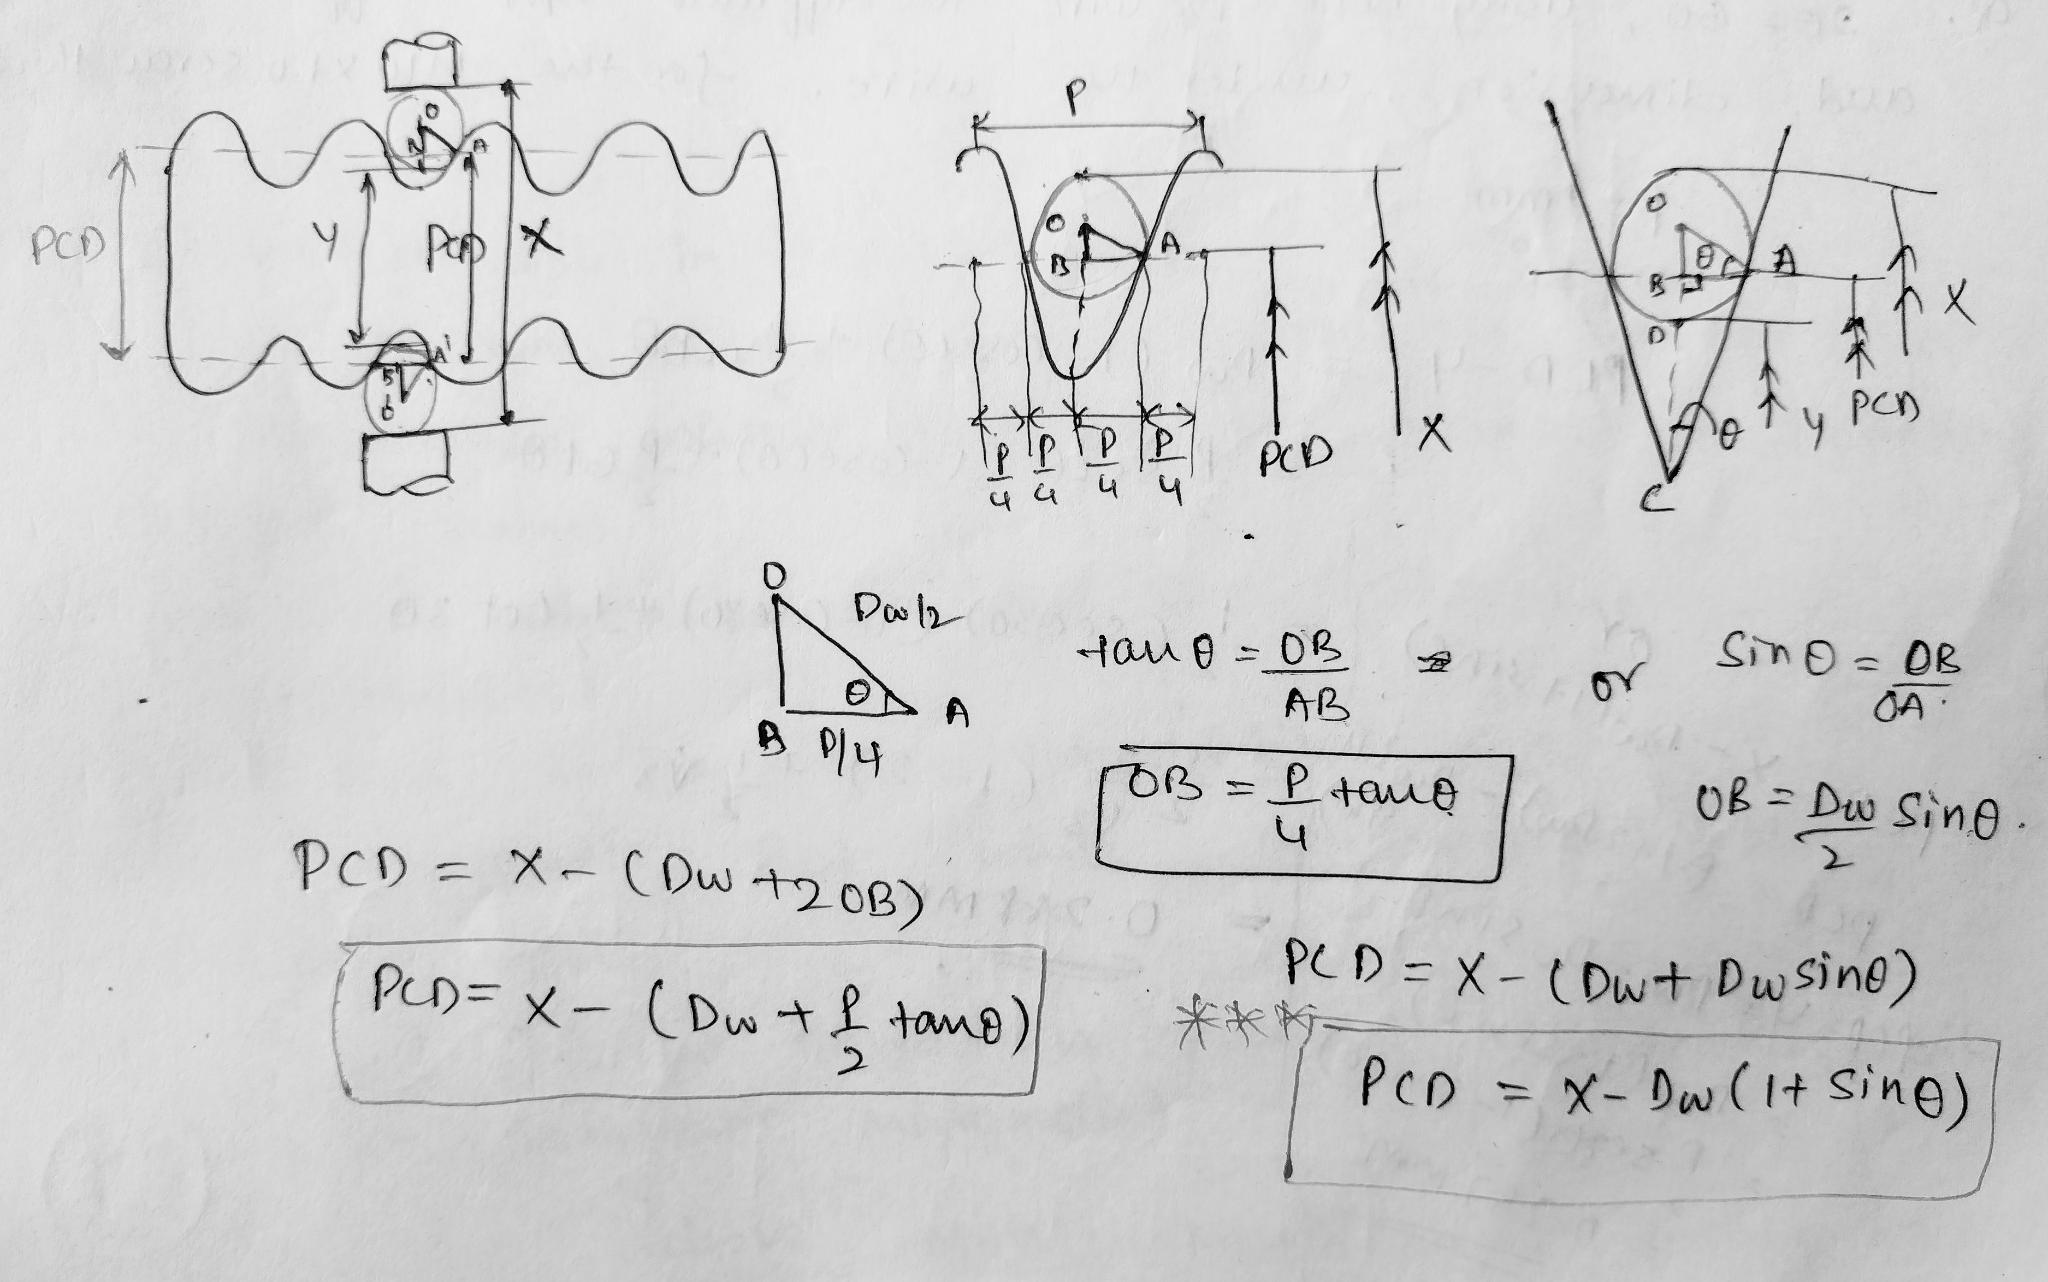 PCD
Y
PCD
X
O
B
A
A'
B
O
P
O
B
A
P/4 P/4 P/4 P/4
PCD
X
O
θ
B
A
D
θ
C
Y
PCD
X
O
Dw/2
θ
B
P/4
A
tanθ = OB/AB or Sinθ = OB/OA.
OB = P/4 tanθ
OB = Dw/2 Sinθ.
PCD = X - (Dw + 2OB)
PCD = X - (Dw + P/2 tanθ)
PCD = X - (Dw + Dw sinθ)
***
PCD = X - Dw (1 + Sinθ)